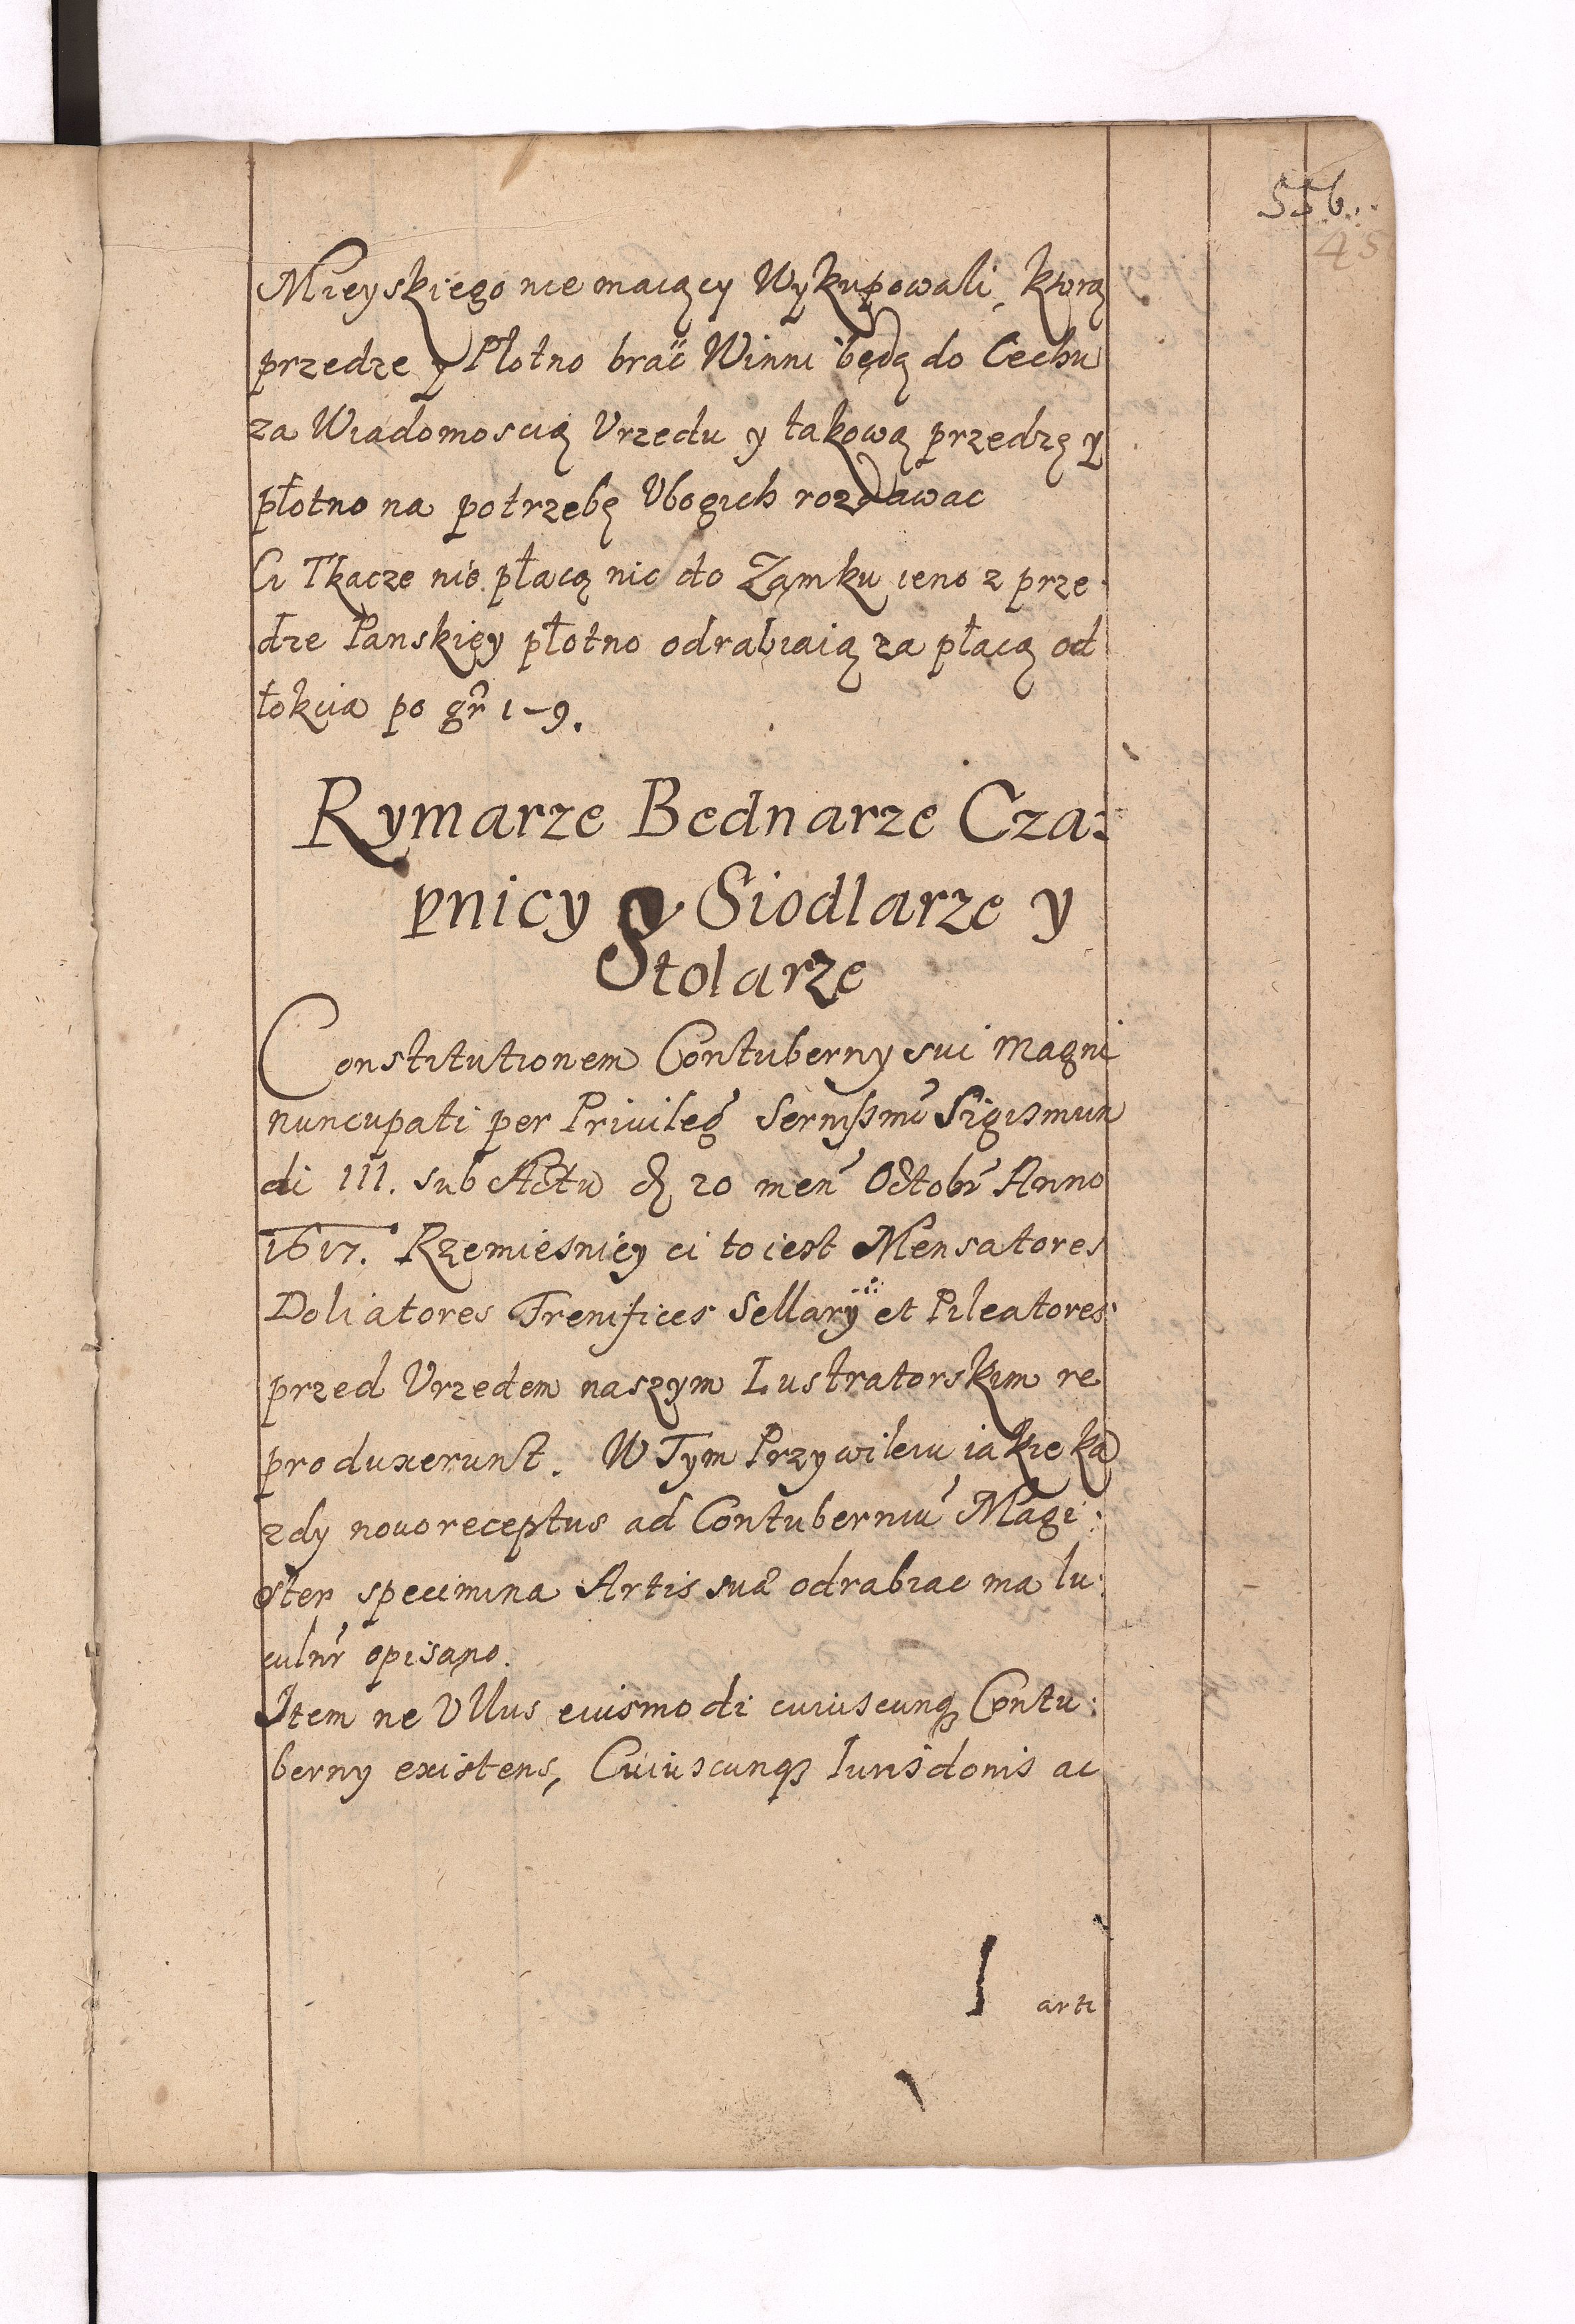 556.
45
Mieyskiego nie maiący Wykupowali, ktorą
przedze y Płotno brać Winni będą do Cechu
za Wiadomoscią Vrzedu y takową przedzę y
płotno na potrzebę Vbogich rozdawac
Ci Tkacze nie płacą nic do Zamku ieno z prze
dze Panskiey płotno odrabiaią za płacą od
łokcia po gr 1-9.
Rymarze Bednarze Cza:
pnicy Siodlarze y
Stolarze
Constitutionem Contuberny sui magni
nuncupati per Priuileg Serniss mi Sigismun
di III. sub Actu d 20 men Octobr Anno
1617. Rzemiesnicy ci to iest Mensatores
Doliatores Frenifices Sellarÿ et Pileatores
przed Vrzedem naszym Lustratorskim re
produxerunt. W Tym Przywileiu iakie ka
zdy nouoreceptus ad Contuberniu Magi:
ster specimina Artis sua odrabiac ma lu:
culnr opisano.
Item ne Vllus eiusmodi cuiuscunq Contu:
berny existens, Cuiuscunq Iurisdonis ac
arti